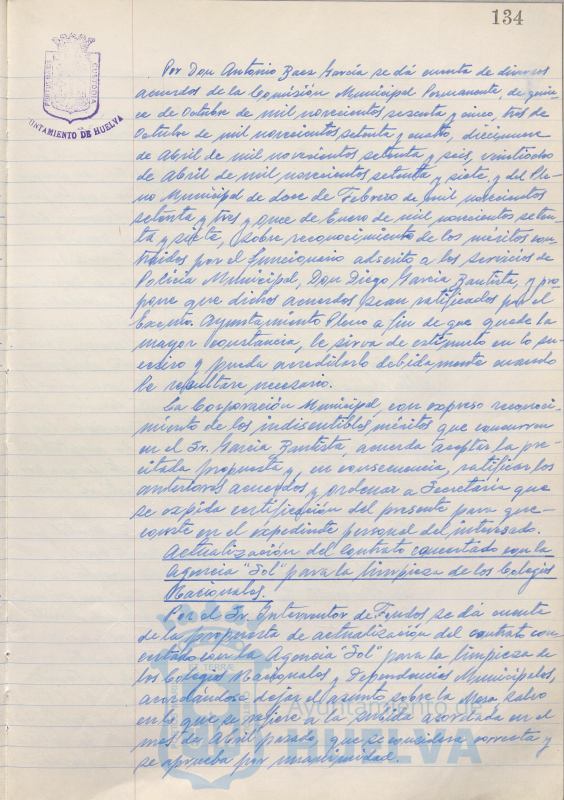 134
PORTUS MARIS ET TERRAE CUSTODIA
AYUNTAMIENTO DE HUELVA
Por Don Antonio Baez García se dá cuenta de diversos
acuerdos de la Comisión Municipal Permanente, de quin-
ce de Octubre de mil novecientos sesenta y cinco, tres de
Octubre de mil novecientos setenta y cuatro, diecinueve
de Abril de mil novecientos setenta y seis, veintidos
de Abril de mil novecientos setenta y siete, y del Ple-
no Municipal de doce de Febrero de mil novecientos
setenta y tres y once de Enero de mil novecientos seten-
ta y siete, sobre reconocimiento de los méritos con-
traidos por el funcionario adscrito a los servicios de
Policía Municipal, Don Diego García Bautista, y pro-
pone que dichos acuerdos sean ratificados por el
Excmo. Ayuntamiento Pleno a fin de que quede la
mayor constancia, le sirva de estímulo en lo su-
cesivo y pueda acreditarlo debidamente cuando
le resultare necesario.
La Corporación Municipal, con expreso reconoci-
miento de los indiscutibles méritos que concurren
en el Sr. García Bautista, acuerda aceptar la pre-
citada propuesta y, en consecuencia, ratificar los
anteriores acuerdos y ordenar a Secretaría que
se expida certificación del presente para que
conste en el expediente personal del interesado.
Actualización del contrato concertado con la
Agencia "Sol" para la limpieza de los Colegios
Nacionales.
Por el Sr. Interventor de Fondos, se dá cuenta
de la propuesta de actualización del contrato con-
certado con la Agencia "Sol" para la limpieza de
los Colegios Nacionales y Dependencias Municipales,
acordándose dejar el asunto sobre la Mesa, salvo
en lo que se refiere a la subida acordada en el
mes de Abril pasado, que se considera correcta y
se aprueba por unanimidad.
Ayuntamiento de
HUELVA